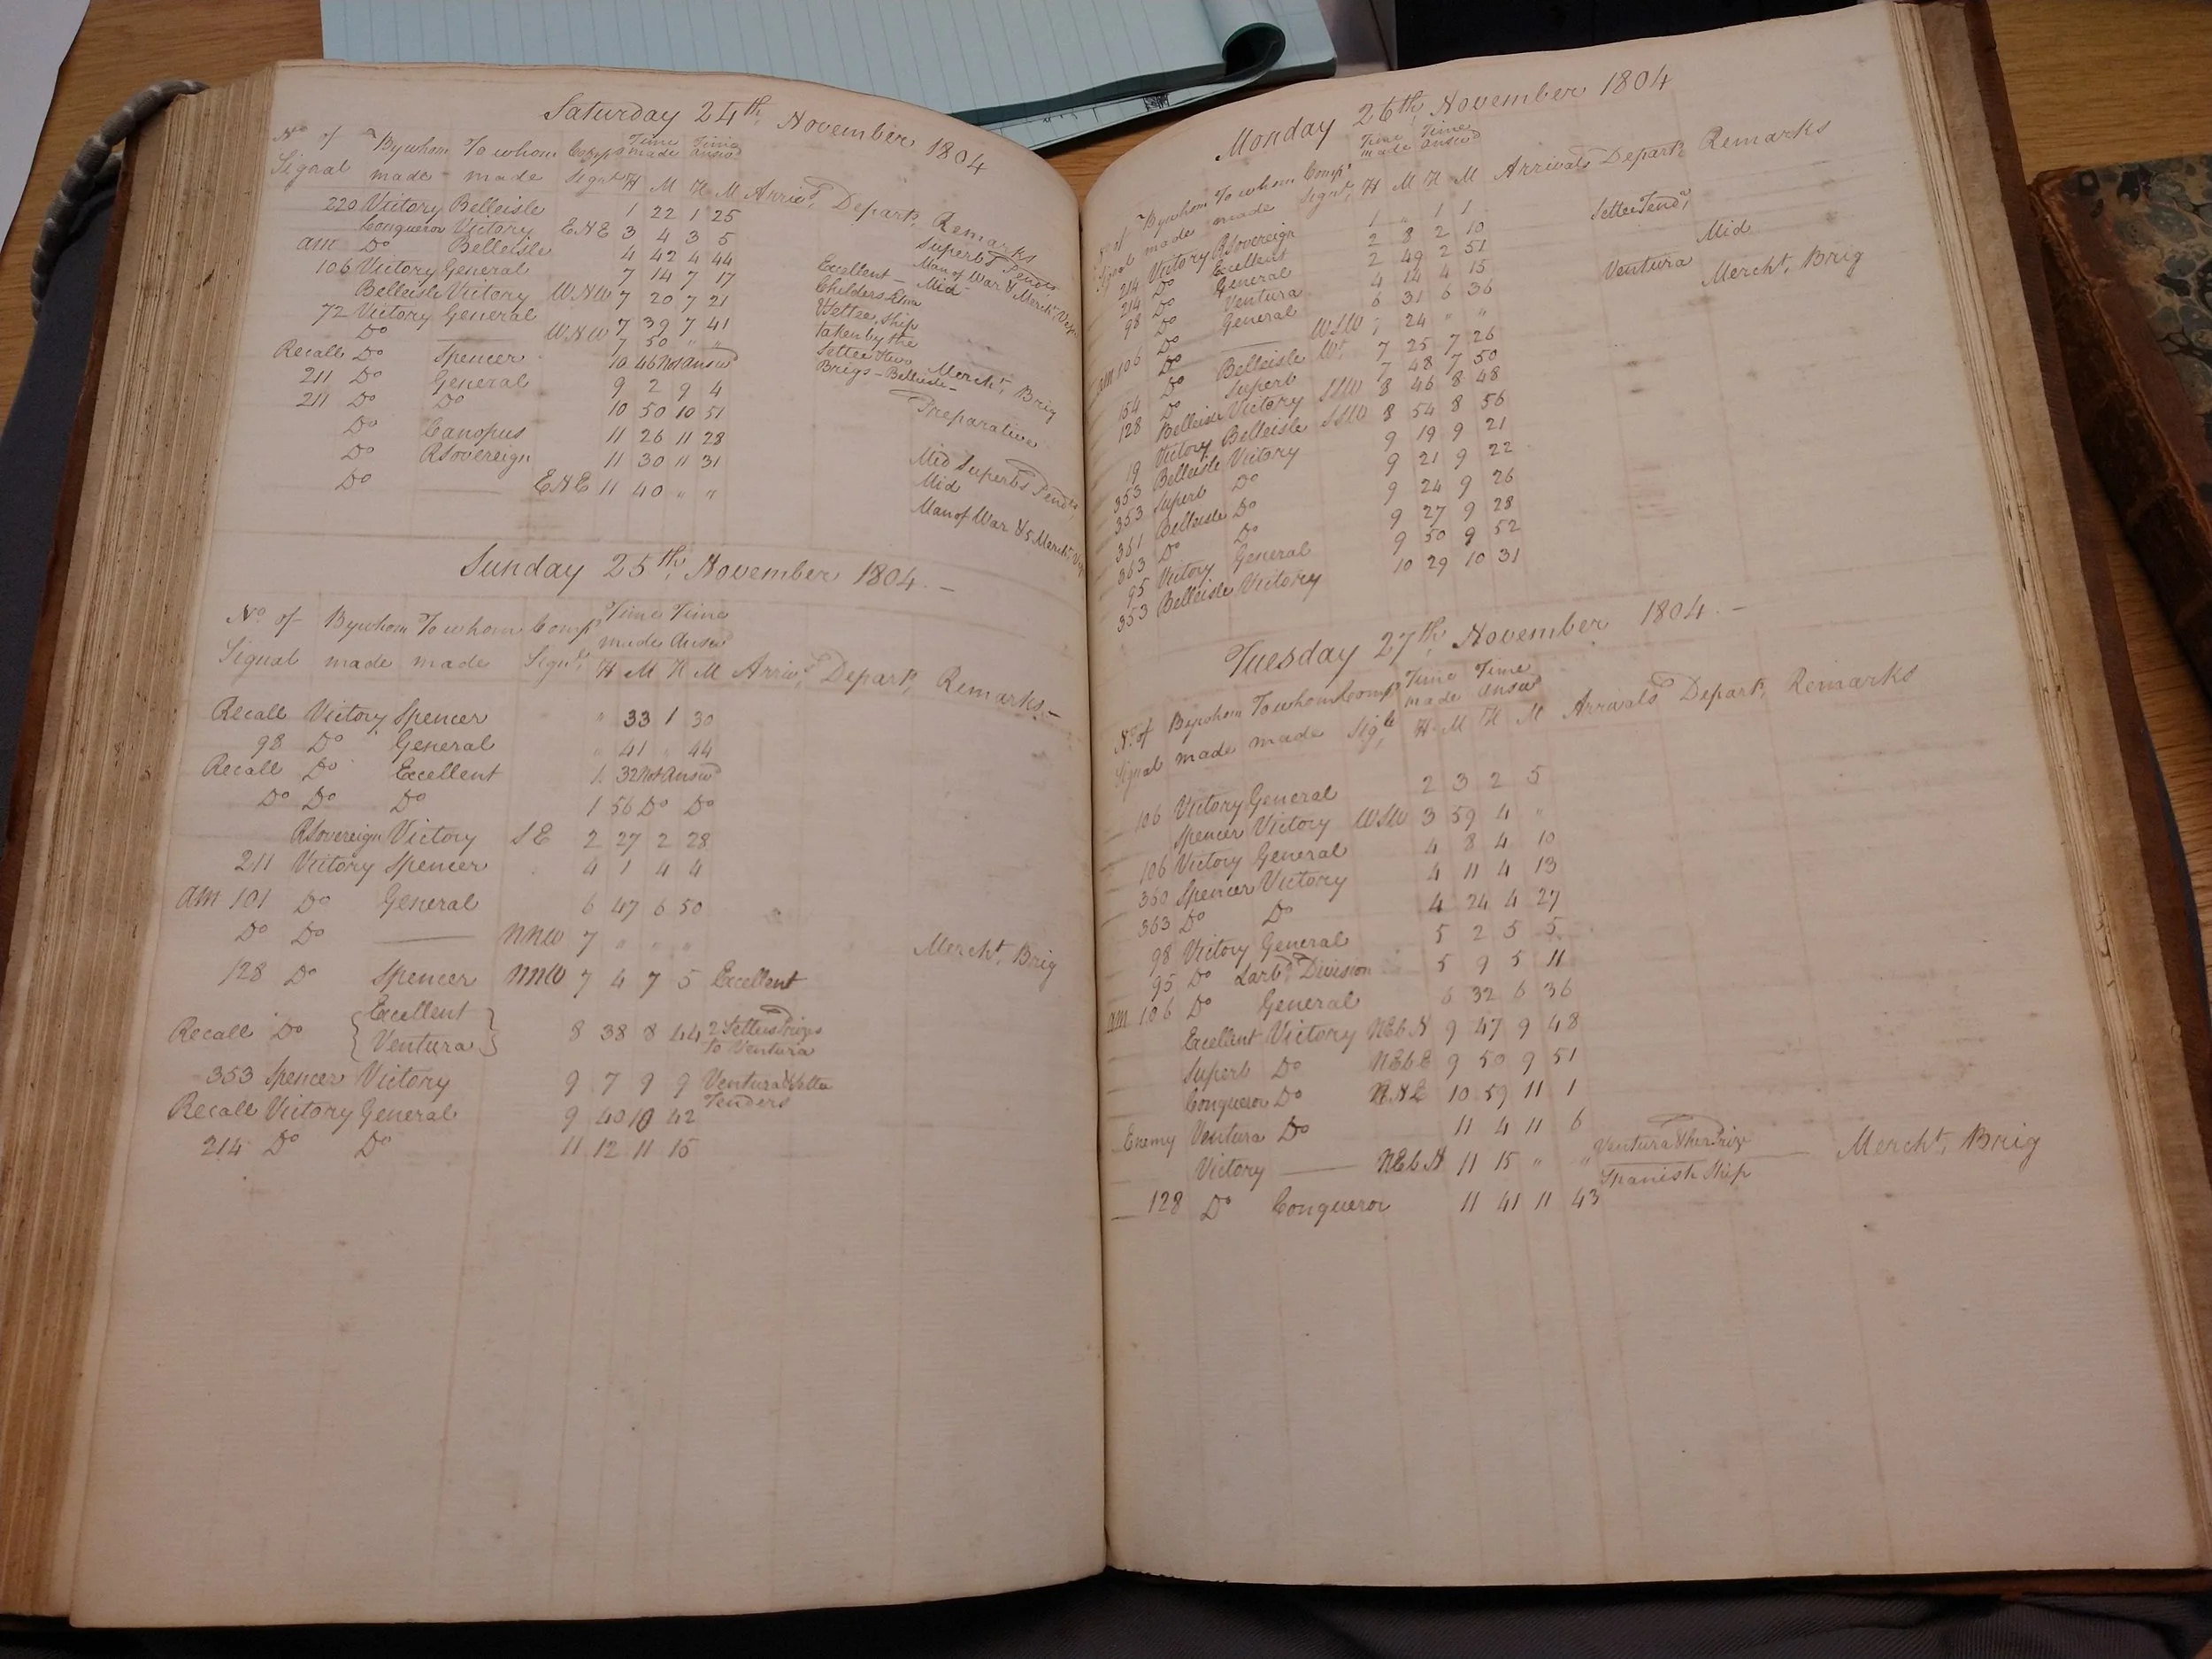 Saturday 24th November 1804
No of By whom To whom Comps Time made Time answd
Signal made made Signl H M H M Arrivd Depart Remarks
220 Victory Belleisle 1 22 1 25 Superbs Pendts
Conqueror Victory ENE 3 4 3 5 Man of War & Mercht
am Do Belleisle 4 42 4 44 Excellent — Mid
106 Victory General 7 14 7 17 Childers
Belleisle Victory WNW 7 20 7 21 Settee, Ship
72 Victory General 7 39 7 41 taken by the
Do —— WNW 7 50 " " Settee two Mercht Brig
Recall Do Spencer 10 46 Not Answd Brigs — Belleisle —
211 Do General 9 2 9 4 Preparative
211 Do Do 10 50 10 51
Do Canopus 11 26 11 28 Mid Superbs Pendts
Do RSovereign 11 30 11 31 Mid
Do —— ENE 11 40 " " Man of War & 5 Mercht
Sunday 25th November 1804. —
No of By whom To whom Comp Time Time
made Answd
Signal made made Signl H M H M Arrivd Depart Remarks —
Recall Victory Spencer " 33 1 30
98 Do General " 41 " 44
Recall Do Excellent 1 32 Not Answd
Do Do Do 1 56 Do Do
RSovereign Victory SE 2 27 2 28
211 Victory Spencer 4 1 4 4
am 101 Do General 6 47 6 50
Do Do —— NNW 7 " " " Mercht Brig
128 Do Spencer NNW 7 4 7 5 Excellent
Recall Do { Excellent Ventura } 8 38 8 44 2 Settees Prizes to Ventura
353 Spencer Victory 9 7 9 9 Ventura & Settee
Tenders
Recall Victory General 9 40 10 42
214 Do Do 11 12 11 15
Monday 26th November 1804
No of By whom To whom Comps Time made Time answd
Signal made made Signl H M H M Arrivals Depart Remarks
214 Victory RSovereign 1 " 1 1 Settee Tendr
214 Do Excellent 2 8 2 10 Mid
98 Do General 2 49 2 51
Do Ventura 4 14 4 15 Ventura Mercht Brig
am 106 Do General 6 31 6 36
Do —— WSW 7 24 " "
154 Do Belleisle Wt 7 25 7 26
128 Do Superb 7 48 7 50
Belleisle Victory SSW 8 46 8 48
19 Victory Belleisle SSW 8 54 8 56
353 Belleisle Victory 9 19 9 21
353 Superb Do 9 21 9 22
361 Belleisle Do 9 24 9 26
363 Do Do 9 27 9 28
95 Victory General 9 50 9 52
353 Belleisle Victory 10 29 10 31
Tuesday 27th November 1804. —
No of By whom To whom Comp Time made Time answd
Signal made made Sigl H M H M Arrivals Depart Remarks
106 Victory General 2 3 2 5
Spencer Victory WSW 3 59 4 "
106 Victory General 4 8 4 10
360 Spencer Victory 4 11 4 13
363 Do Do 4 24 4 27
98 Victory General 5 2 5 5
95 Do Larbd Division 5 9 5 11
am 106 Do General 6 32 6 36
Excellent Victory NEbN 9 47 9 48
Superb Do NEbE 9 50 9 51
Conqueror Do 10 59 11 1
Enemy Ventura Do 11 4 11 6
Victory —— NEbN 11 15 " " Ventura & her Prize —— Mercht Brig
Spanish Ship
128 Do Conqueror 11 41 11 43